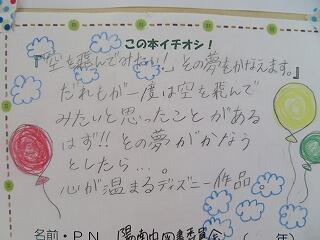 この本イチオシ！
『空を飛んでみたい！』その夢をかなえます。
だれもが一度は空を飛んで
みたいと思ったことがある
はず!! その夢がかなう
としたら…。
心が温まるディズニー作品
名前・PN 陽南中図書委員会 （ 年）